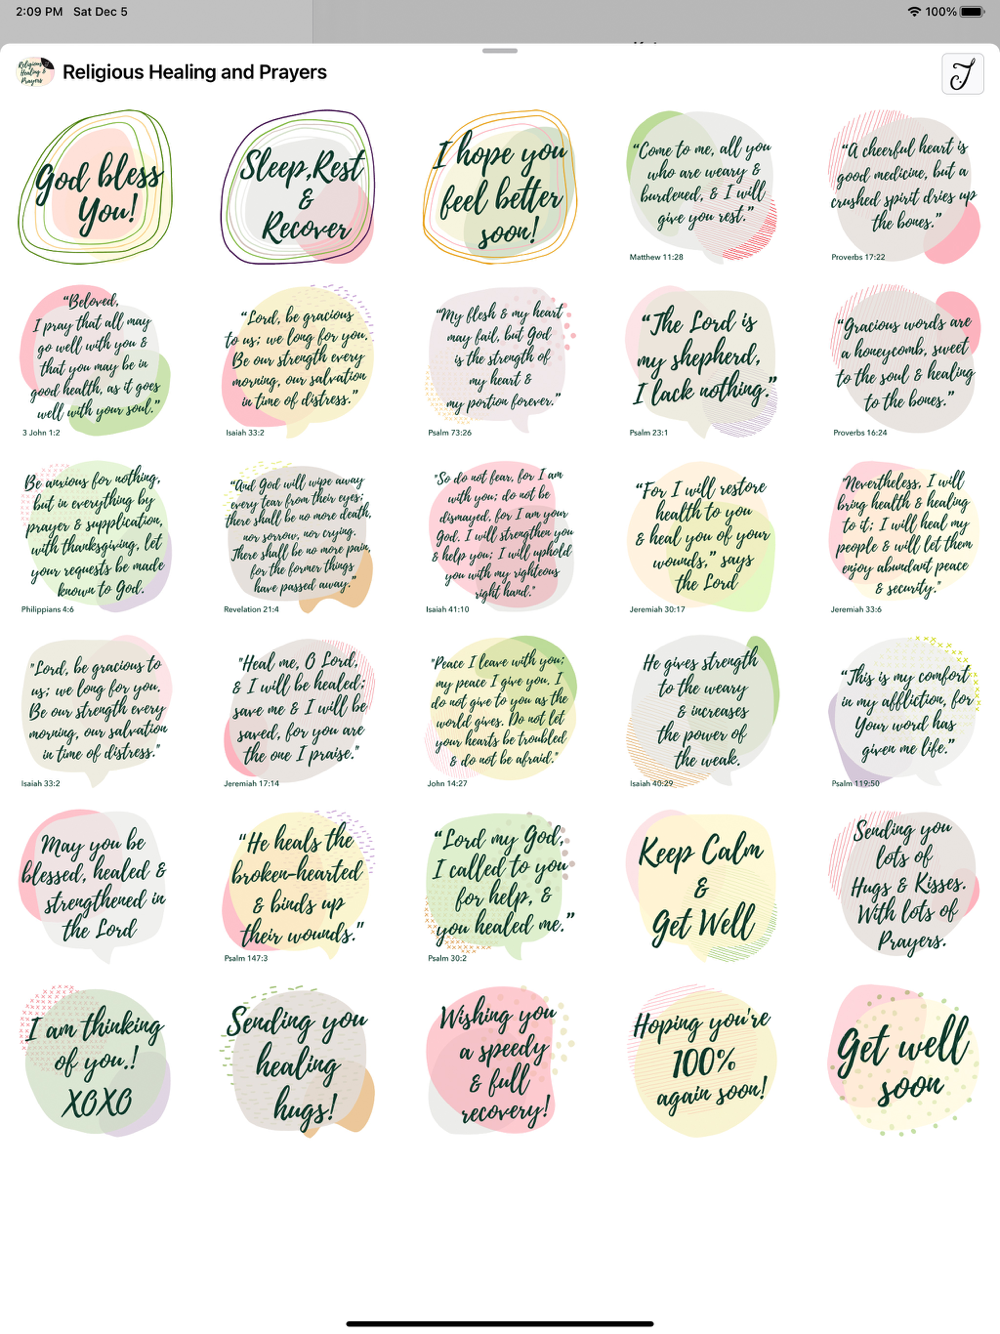 2:09 PM Sat Dec 5
100%
Religious Healing & Prayers
Religious Healing and Prayers
J
God bless
You!
Sleep,Rest
&
Recover
I hope you
feel better
soon!
“Come to me, all you
who are weary &
burdened, & I will
give you rest.”
Matthew 11:28
“A cheerful heart is
good medicine, but a
crushed spirit dries up
the bones.”
Proverbs 17:22
“Beloved,
I pray that all may
go well with you &
that you may be in
good health, as it goes
well with your soul.”
3 John 1:2
“Lord, be gracious
to us; we long for you.
Be our strength every
morning, our salvation
in time of distress.”
Isaiah 33:2
“My flesh & my heart
may fail, but God
is the strength of
my heart &
my portion forever.”
Psalm 73:26
“The Lord is
my shepherd,
I lack nothing.”
Psalm 23:1
“Gracious words are
a honeycomb, sweet
to the soul & healing
to the bones.”
Proverbs 16:24
Be anxious for nothing,
but in everything by
prayer & supplication,
with thanksgiving, let
your requests be made
known to God.
Philippians 4:6
“And God will wipe away
every tear from their eyes;
there shall be no more death,
nor sorrow, nor crying.
There shall be no more pain,
for the former things
have passed away.”
Revelation 21:4
“So do not fear, for I am
with you; do not be
dismayed, for I am your
God. I will strengthen you
& help you; I will uphold
you with my righteous
right hand.”
Isaiah 41:10
“For I will restore
health to you
& heal you of your
wounds,” says
the Lord
Jeremiah 30:17
“Nevertheless, I will
bring health & healing
to it; I will heal my
people & will let them
enjoy abundant peace
& security.”
Jeremiah 33:6
"Lord, be gracious to
us; we long for you.
Be our strength every
morning, our salvation
in time of distress."
Isaiah 33:2
"Heal me, O Lord,
& I will be healed;
save me & I will be
saved, for you are
the one I praise."
Jeremiah 17:14
"Peace I leave with you;
my peace I give you. I
do not give to you as the
world gives. Do not let
your hearts be troubled
& do not be afraid."
John 14:27
He gives strength
to the weary
& increases
the power of
the weak.
Isaiah 40:29
“This is my comfort
in my affliction, for
Your word has
given me life.”
Psalm 119:50
May you be
blessed, healed &
strengthened in
the Lord
“He heals the
broken-hearted
& binds up
their wounds.”
Psalm 147:3
“Lord my God,
I called to you
for help, &
you healed me.”
Psalm 30:2
Keep Calm
&
Get Well
Sending you
lots of
Hugs & Kisses.
With lots of
Prayers.
I am thinking
of you.!
XOXO
Sending you
healing
hugs!
Wishing you
a speedy
& full
recovery!
Hoping you're
100%
again soon!
Get well
soon